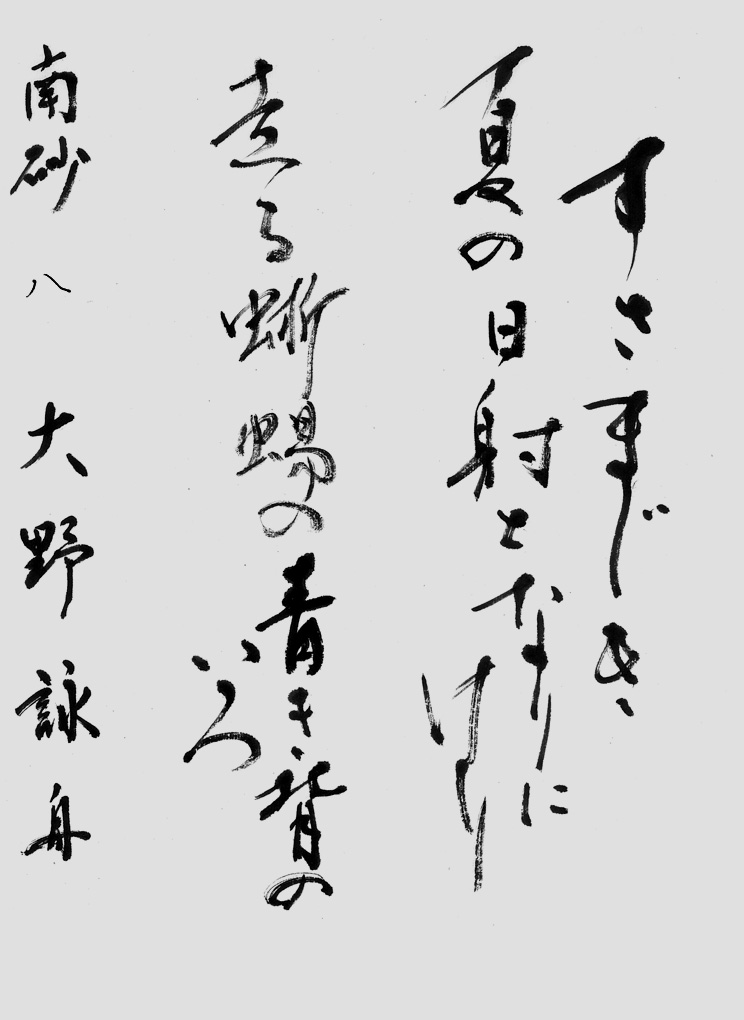 すさまじき
夏の日射となりに
けり
走る蜥蜴の青き背の
いろ
南砂 八 大野詠舟